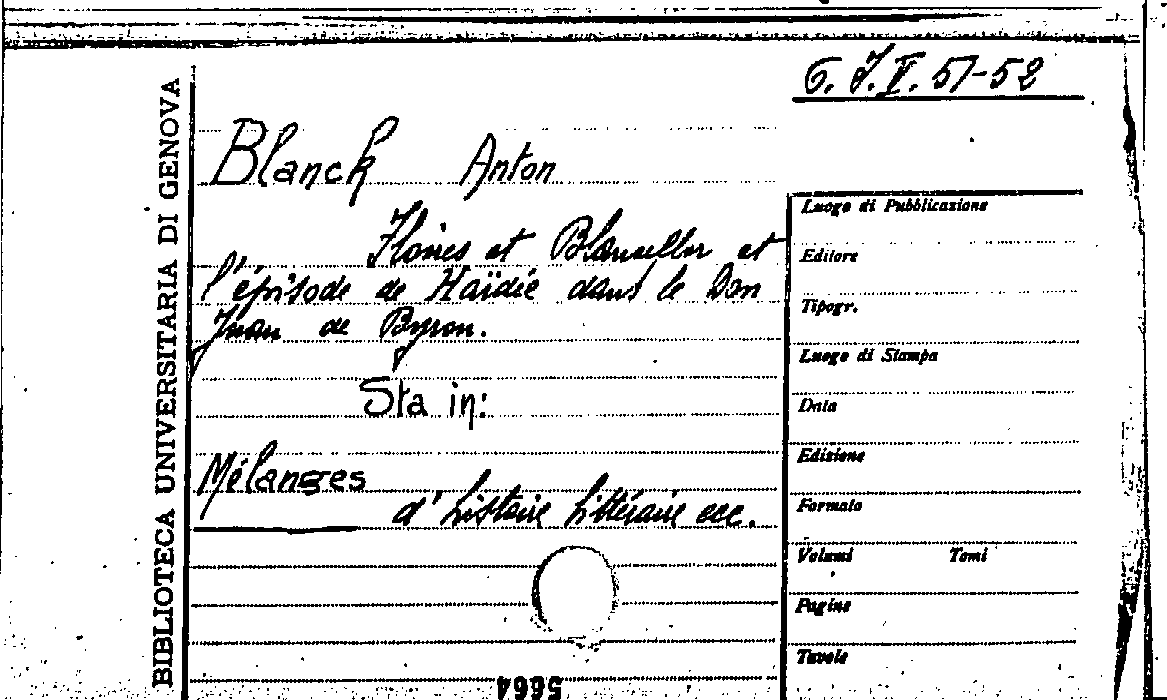 6. J. V. 51-52
BIBLIOTECA UNIVERSITARIA DI GENOVA
Blanck Anton
Floires et Blanceflor et
l'épisode de Haïdée dans le Don
Juan de Byron.
Sta in:
Mélanges
d'histoire littéraire ecc.
Luogo di Pubblicazione
Editore
Tipogr.
Luogo di Stampa
Data
Edizione
Formato
Volumi Tomi
Pagine
Tavole
5664